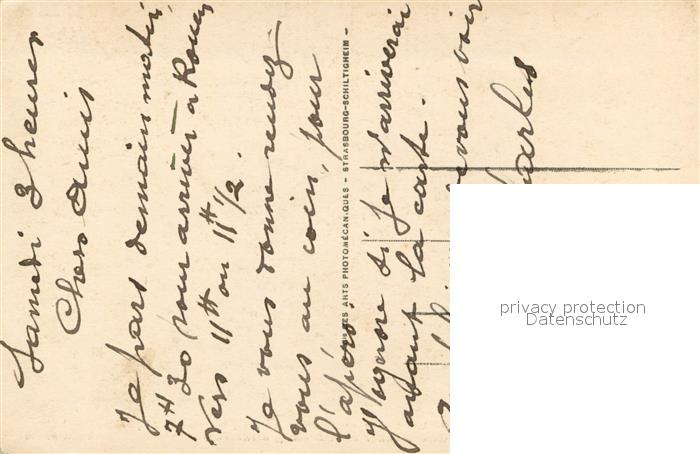 Samedi 3 heures
Chers Amis
Je pars demain matin
7H 30 pour arriver a Rouen
vers 11H ou 11H 1/2.
Je vous donne rendez
vous au coin, pour
l'apéro.
J'ignore si je n'arriverai
avant la carte.
vous voir
Charles
ES ARTS PHOTOMÉCANIQUES - STRASBOURG-SCHILTIGHEIM -
privacy protection
Datenschutz